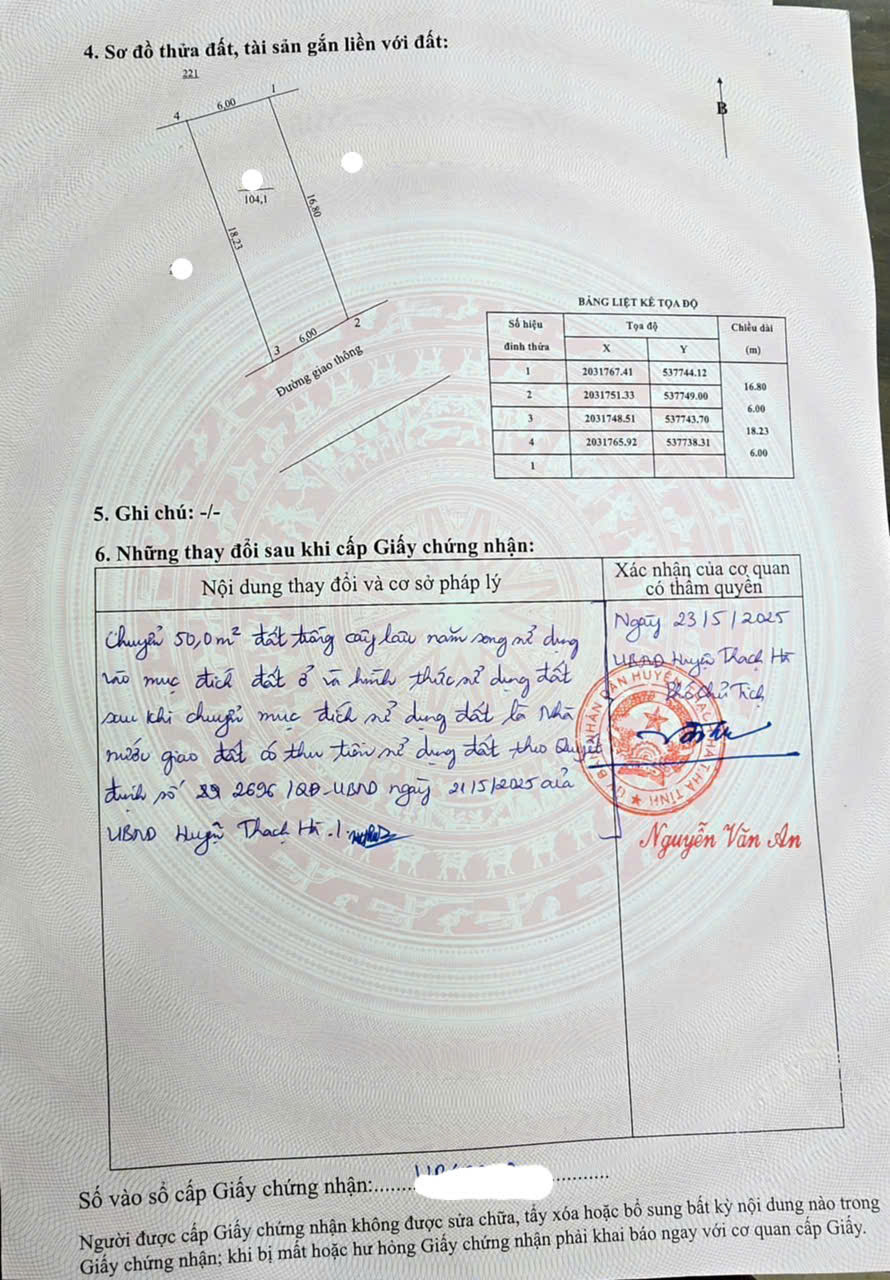 4. Sơ đồ thửa đất, tài sản gắn liền với đất:
221
1
6,00
4
B
104,1
16,80
18,23
2
6,00
3
Đường giao thông
BẢNG LIỆT KÊ TỌA ĐỘ
Số hiệu đỉnh thửa Tọa độ Chiều dài (m)
X Y
1 2031767.41 537744.12
16.80
2 2031751.33 537749.00
6.00
3 2031748.51 537743.70
18.23
4 2031765.92 537738.31
6.00
1
5. Ghi chú: -/-
6. Những thay đổi sau khi cấp Giấy chứng nhận:
Nội dung thay đổi và cơ sở pháp lý
Xác nhận của cơ quan
có thẩm quyền
Chuyển 50,0m² đất trồng cây lâu năm sang sử dụng
vào mục đích đất ở và hình thức sử dụng đất
sau khi chuyển mục đích sử dụng đất là Nhà
nước giao đất có thu tiền sử dụng đất theo Quyết
định số 2696/QĐ-UBND ngày 21/5/2025 của
UBND Huyện Thạch Hà./.
Ngày 23/5/2025
UBND Huyện Thạch Hà
Phó Chủ Tịch
Nguyễn Văn An
Số vào sổ cấp Giấy chứng nhận:
Người được cấp Giấy chứng nhận không được sửa chữa, tẩy xóa hoặc bổ sung bất kỳ nội dung nào trong
Giấy chứng nhận; khi bị mất hoặc hư hỏng Giấy chứng nhận phải khai báo ngay với cơ quan cấp Giấy.